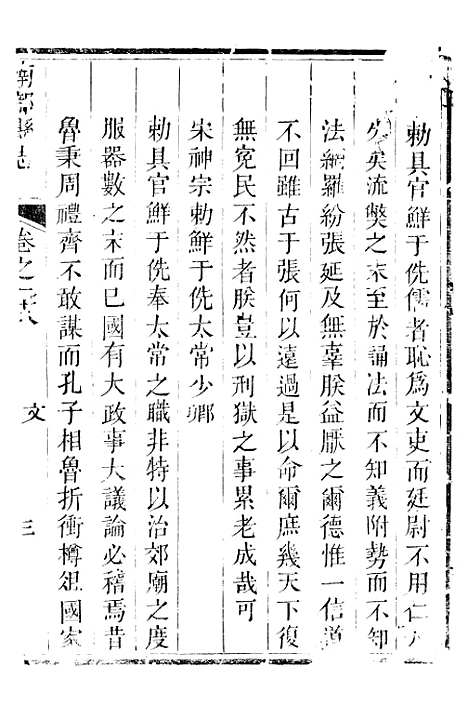 勅具官鮮于侁儒者恥爲文吏而廷尉不用仁人
久矣流獘之末至於誦法而不知義附勢而不知
法網羅紛張延及無辜朕益厭之爾德惟一信道
不回雖古于張何以遠過是以命爾庶幾天下復
無寃民不然者朕豈以刑獄之事累老成哉可
宋神宗勅鮮于侁太常少卿
勅具官鮮于侁奉太常之職非特以治郊廟之度
服器數之末而已國有大政事大議論必稽焉昔
魯秉周禮齊不敢謀而孔子相魯折衝樽俎國家
南部縣志
卷之二十八
文
三